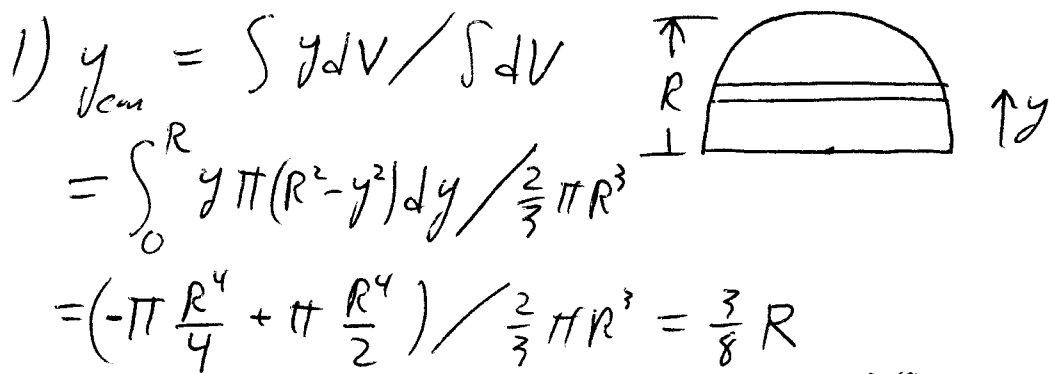 1) y_cm = ∫ y dV / ∫ dV
R
↑ y
= ∫₀ᴿ y π(R²-y²) dy / 2/3 πR³
= (-π R⁴/4 + π R⁴/2) / 2/3 πR³ = 3/8 R